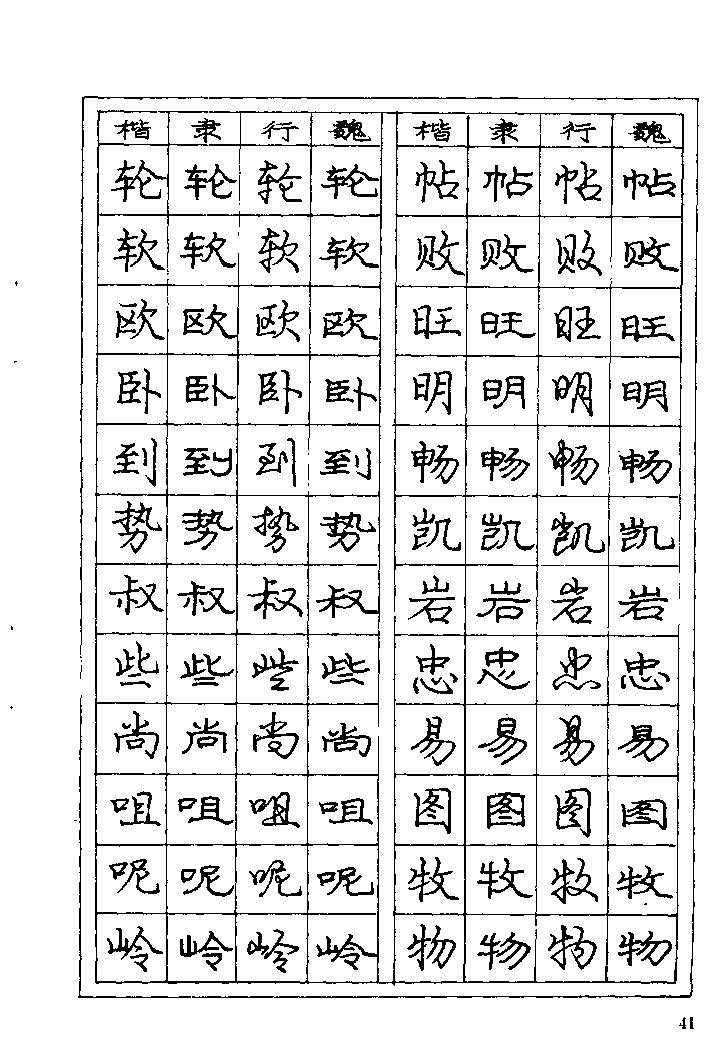 楷 隶 行 魏 楷 隶 行 魏
轮 轮 轮 轮 帖 帖 帖 帖
软 软 软 软 败 败 败 败
欧 欧 欧 欧 旺 旺 旺 旺
卧 卧 卧 卧 明 明 明 明
到 到 到 到 畅 畅 畅 畅
势 势 势 势 凯 凯 凯 凯
叔 叔 叔 叔 岩 岩 岩 岩
些 些 些 些 忠 忠 忠 忠
尚 尚 尚 尚 易 易 易 易
咀 咀 咀 咀 图 图 图 图
呢 呢 呢 呢 牧 牧 牧 牧
岭 岭 岭 岭 物 物 物 物
41